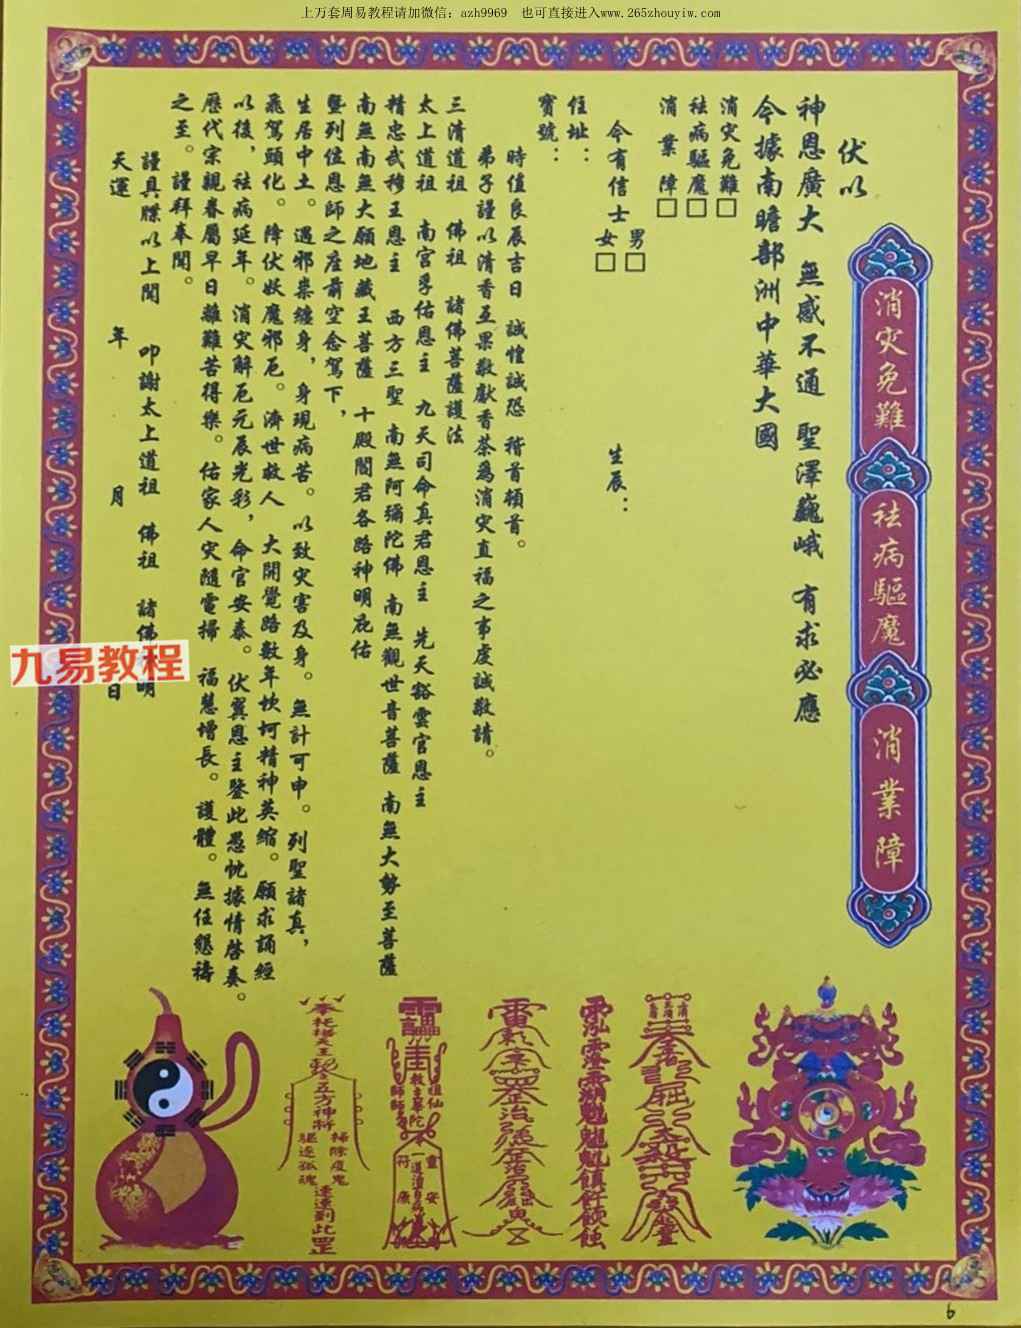 上万套周易教程请加微信：azh9969　也可直接进入www.265zhouyiw.com
消災免難
祛病驅魔
消業障
伏以
神恩廣大　無感不通　聖澤巍峨　有求必應
今據南瞻部洲中華大國
消災免難□
祛病驅魔□
消業障□
今有信士　男□　女□　生辰：
住址：
寶號：
時值良辰吉日　誠惶誠恐　稽首頓首。
弟子謹以清香五果敬獻香茶為消災直福之事虔誠敬請。
三清道祖　佛祖　諸佛菩薩護法
太上道祖　南宮孚佑恩主　九天司命真君恩主　先天豁雲官恩主
精忠武穆王恩主　西方三聖　南無阿彌陀佛　南無觀世音菩薩　南無大勢至菩薩
南無南無大願地藏王菩薩　十殿閻君各路神明庇佑
暨列位恩師之座前空念駕下，
生居中土。遇邪祟纏身，身現病苦。以致災害及身。無計可申。列聖諸真，
飛駕頭化。降伏妖魔邪厄。濟世救人　大開覺路數年坎坷精神英縮。願求誦經
以後，祛病延年。消災解厄元辰光彩，命官安泰。伏冀恩主鑒此愚忱據情啓奏。
歷代宗親眷屬早日離難苦得樂。佑家人災隨電掃　福慧增長。護體。無任懇禱
之至。謹拜奉聞。
謹具牒以上聞　叩謝太上道祖　佛祖　諸佛　明
天運　年　月　日
九易教程
五方神將
掃除瘟鬼
驅逐孤魂
速速到此罡
6